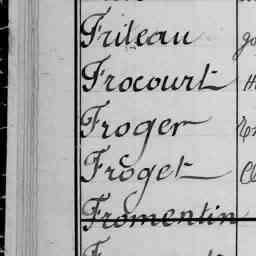 Frileau
Frocourt
Froger
Froget
Fromentin